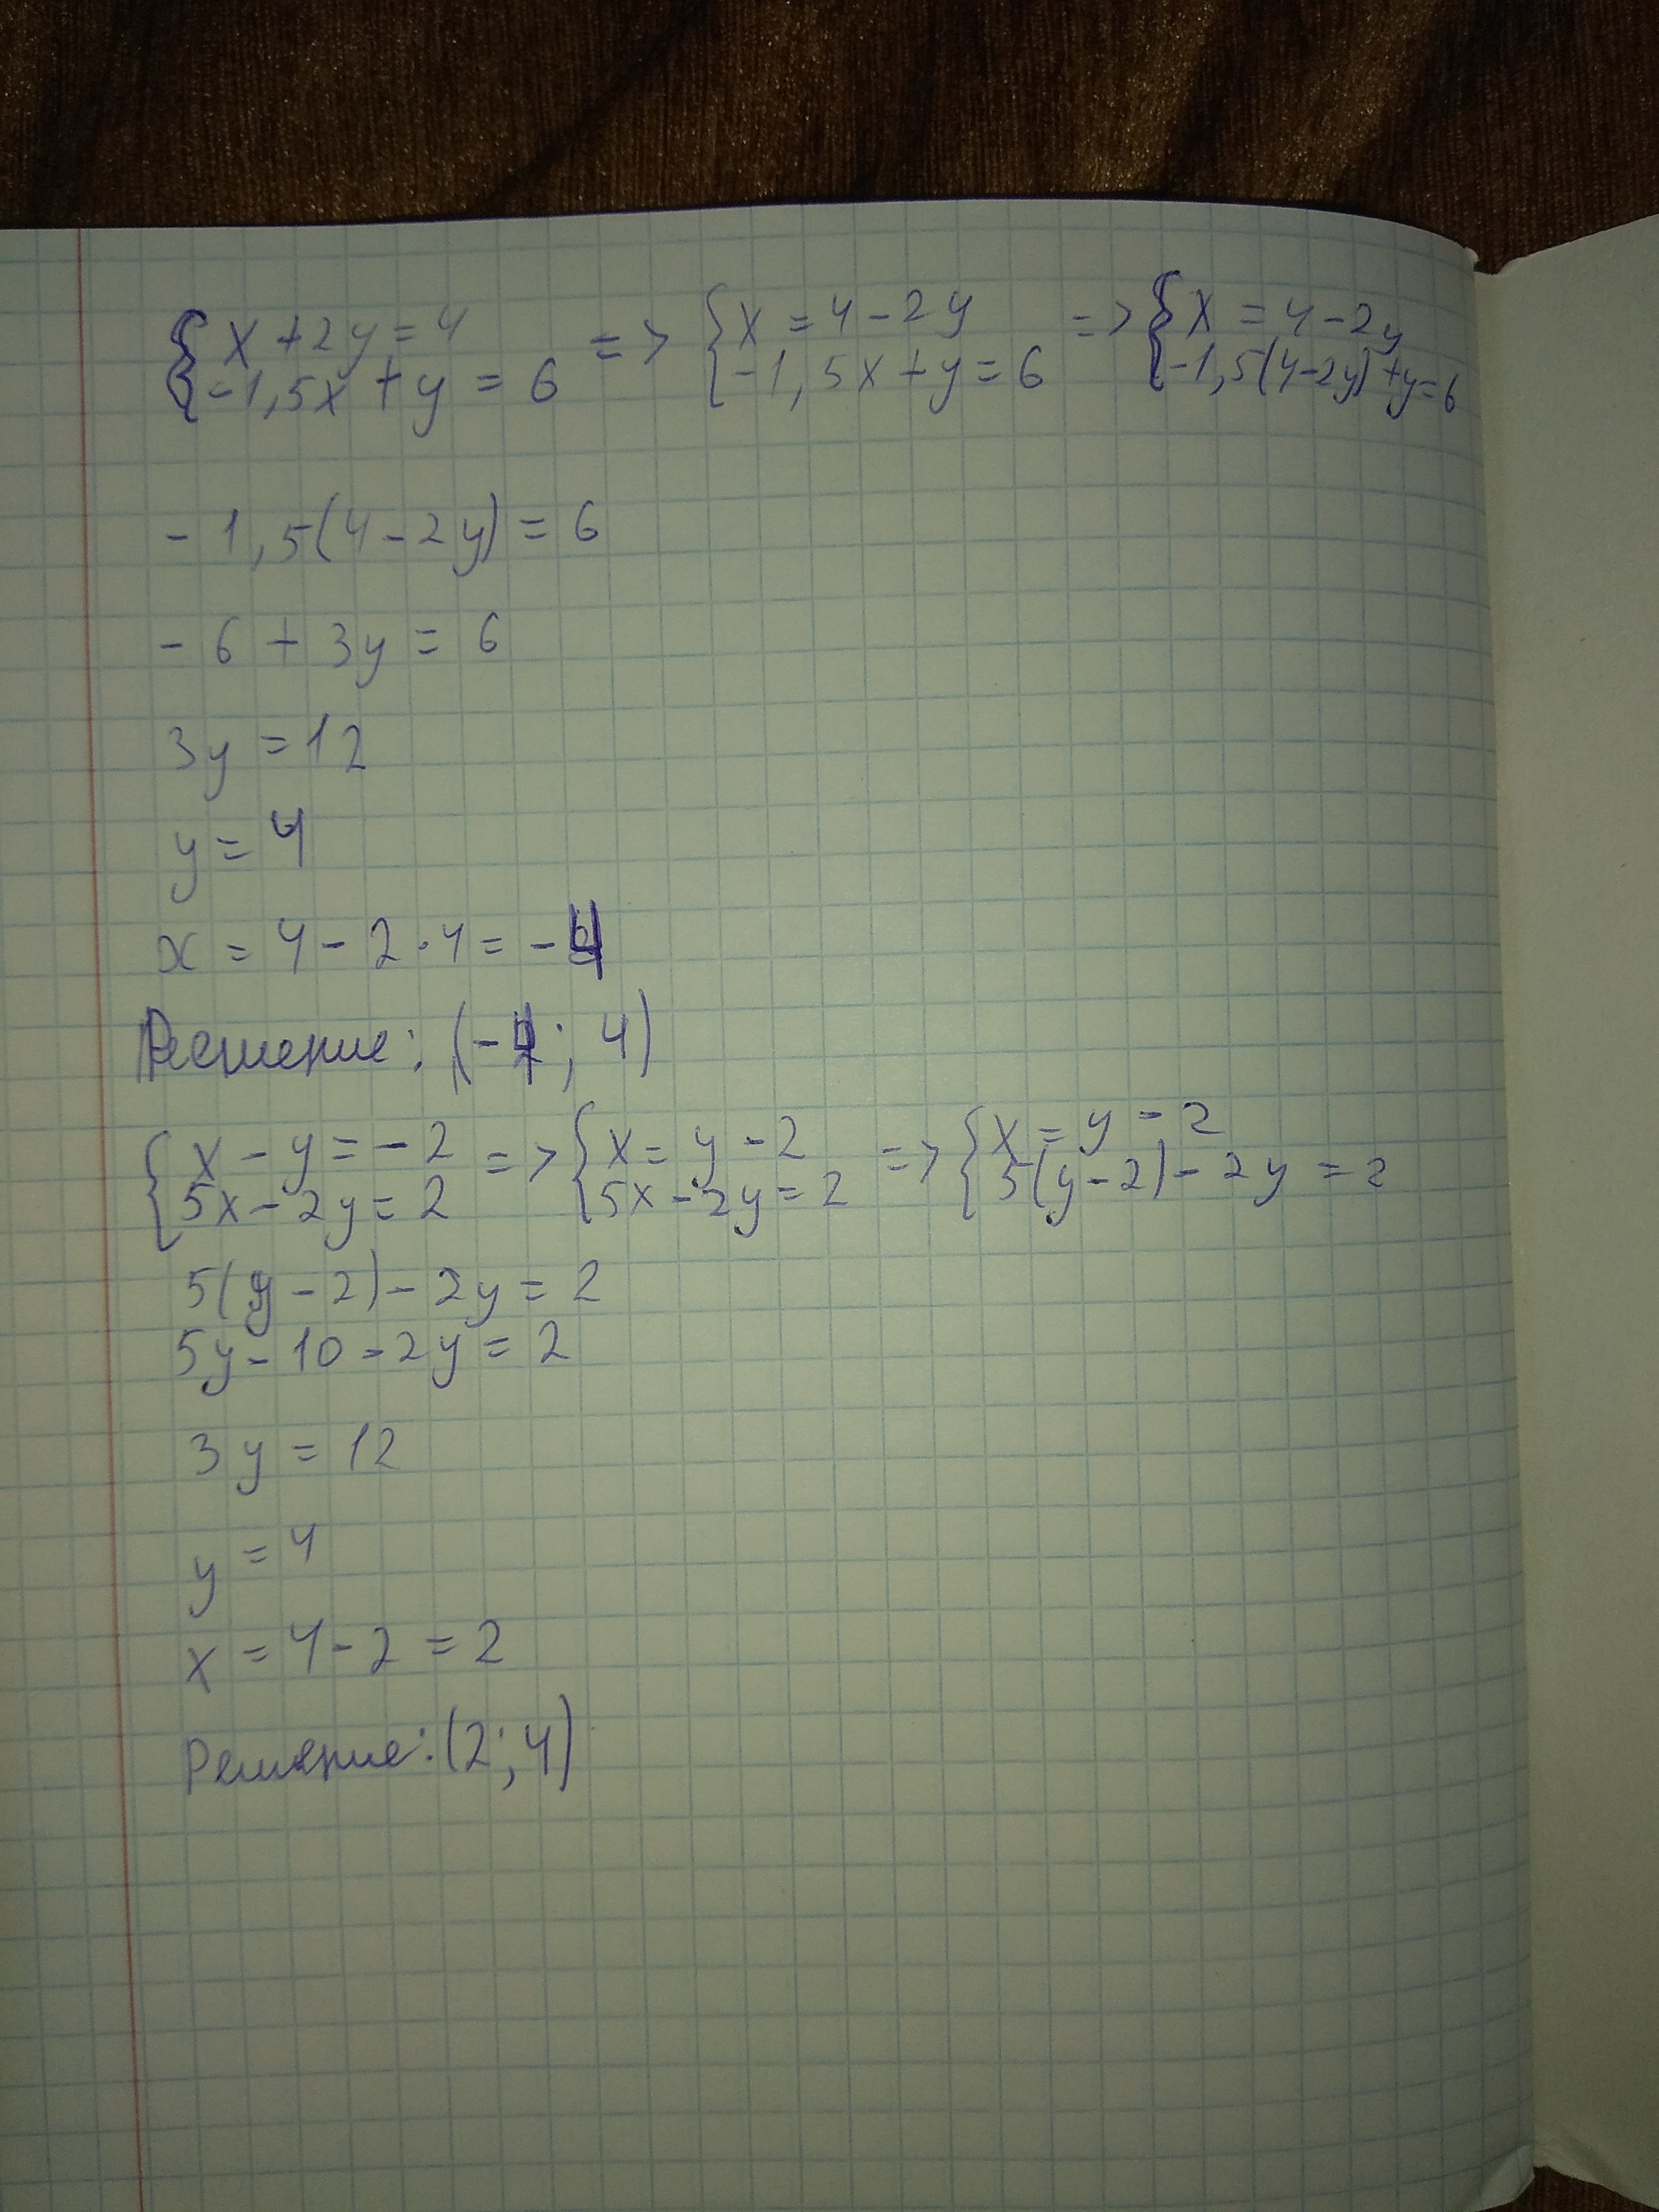 {x + 2y = 4 => {x = 4 - 2y => {x = 4 - 2y
{-1,5x + y = 6 {-1,5x + y = 6 {-1,5(4-2y) + y = 6
-1,5(4 - 2y) = 6
-6 + 3y = 6
3y = 12
y = 4
x = 4 - 2 · 4 = -4
Решение: (-4; 4)
{x - y = -2 => {x = y - 2 => {x = y - 2
{5x - 2y = 2 {5x - 2y = 2 {5(y-2) - 2y = 2
5(y - 2) - 2y = 2
5y - 10 - 2y = 2
3y = 12
y = 4
x = 4 - 2 = 2
Решение: (2; 4)